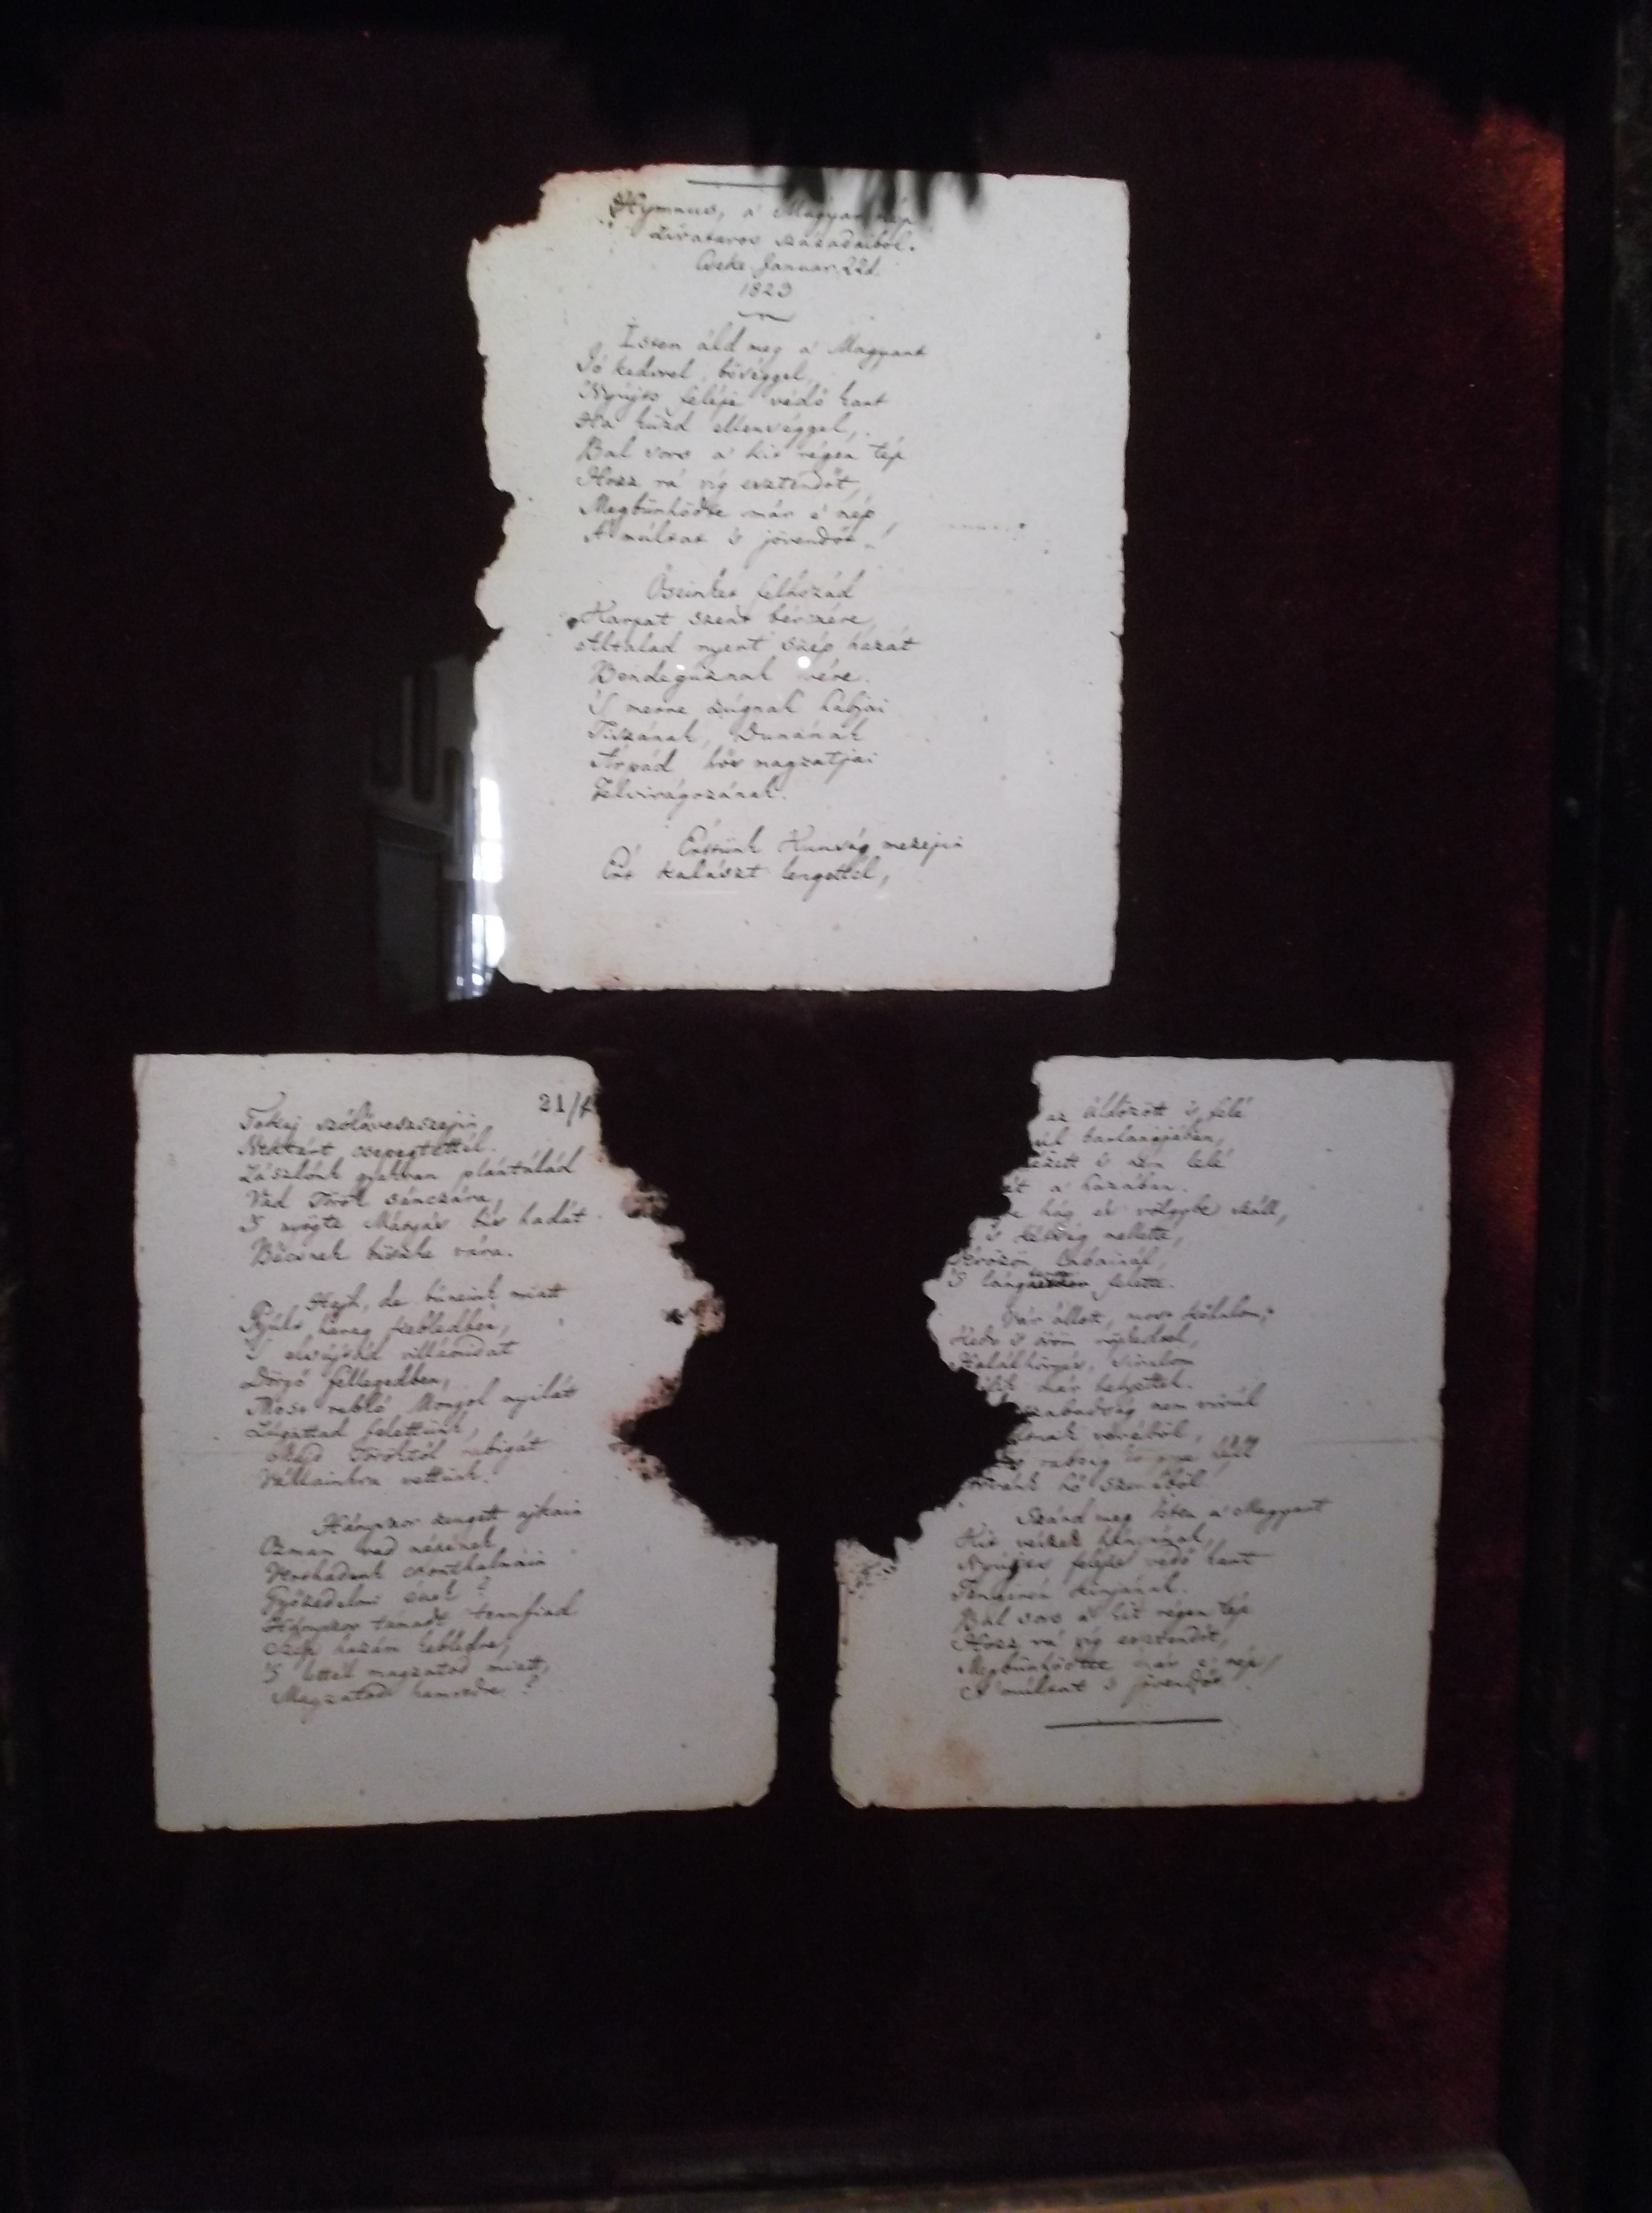 Hymnus, a' Magyar nép
Zivataros századaiból.
Cseke Januar. 22d.
1823
Isten áld meg a' Magyart
Jó kedvvel, bőséggel,
Nyújts feléje védő kart
Ha küzd ellenséggel,
Bal sors a' kit régen tép
Hozz rá víg esztendőt,
Megbűnhödte már e' nép
A' múltat 's jövendőt!
Őseinket felhozád
Karpat szent bérczére,
Általad nyert szép hazát
Bendegúznak vére.
'S merre zúgnak habjai
Tiszának, Dunának
Árpád hős magzatjai
Felvirágozának.
Értünk Kunság mezejin
Ért kalászt lengettél,
21/
Tokaj szőlővesszejin
Nektárt csepegtettél.
Zászlónk gyakran plántálád
Vad Török sánczára,
'S nyögte Mátyás bús hadát
Bécsnek büszke vára.
Hajh, de bűneink miatt
Gyúlt harag kebledben,
'S elsújtád villámidat
Dörgő fellegedben,
Most rabló Mongol nyilát
Zúgattad felettünk,
Majd Töröktől rabigát
Vállainkra vettünk.
Hányszor zengett ajkain
Ozman vad népének
Vert hadunk csonthalmain
Győzedelmi ének?
Hányszor támadt tennfiad
Szép hazám kebledre,
'S lettél magzatod miatt,
Magzatod hamvedre?
az üldözött 's felé
barlangjában,
nézett 's nem lelé
a' hazában.
hág és völgybe száll,
's kétség mellette,
Vérözön lábainál,
'S lángtenger felette.
Vár állott, most kőhalom,
Kedv 's öröm röpkedtek,
Halálhörgés, siralom
már helyettek.
szabadság nem virúl
véréből,
rabság
hő szeméből.
Szánd meg Isten a' Magyart
Kit vészek hányának,
Nyújts feléje védő kart
Tengerén kínjának.
Bal sors a' kit régen tép
Hozz rá víg esztendőt,
Megbűnhödte már e' nép
A' múltat 's jövendőt.